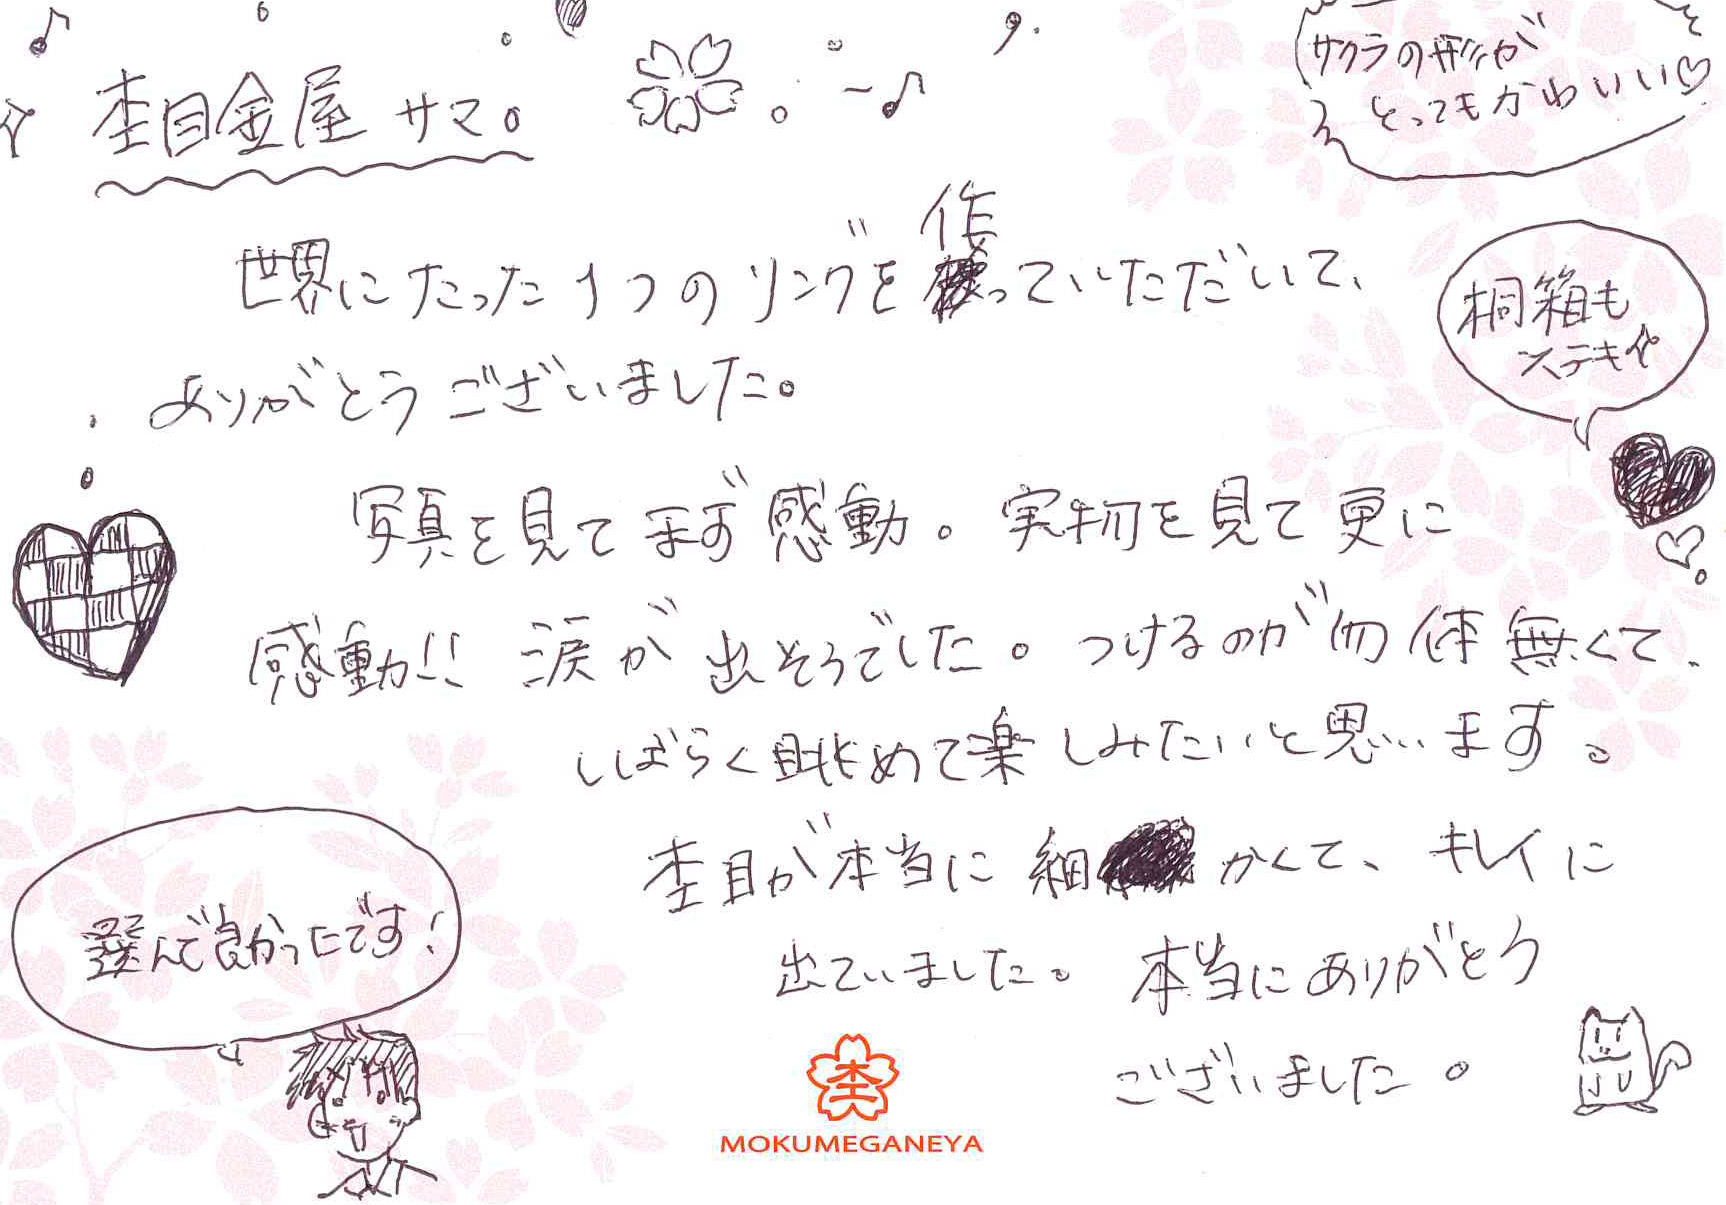 杢目金屋 サマ。
サクラの形が
とってもかわいい♡
世界にたった1つのリングを作っていただいて、
ありがとうございました。
桐箱も
ステキ☆
写真を見てまず感動。実物を見て更に
感動!! 涙が出そうでした。つけるのが勿体無くて、
しばらく眺めて楽しみたいと思います。
杢目が本当に細かくて、キレイに
出ていました。本当にありがとう
ございました。
選んで良かったです!
杢
MOKUMEGANEYA